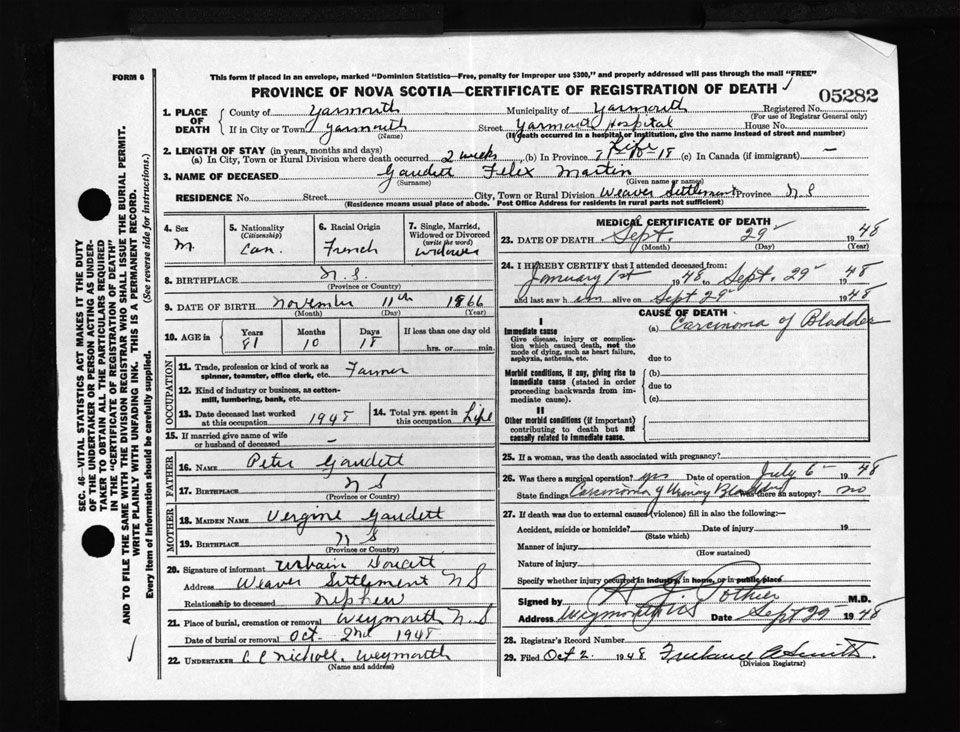 FORM 6
This form if placed in an envelope, marked "Dominion Statistics—Free, penalty for improper use $300," and properly addressed will pass through the mail "FREE"
PROVINCE OF NOVA SCOTIA—CERTIFICATE OF REGISTRATION OF DEATH
05282
1. PLACE OF DEATH
County of Yarmouth Municipality of Yarmouth Registered No.
(For use of Registrar General only)
If in City or Town Yarmouth Street Yarmouth Hospital House No.
(Name) (If death occurred in a hospital or institution, give the name instead of street and number)
2. LENGTH OF STAY (in years, months and days) Life
(a) In City, Town or Rural Division where death occurred 2 weeks (b) In Province (c) In Canada (if immigrant) —
3. NAME OF DECEASED Gaudett Felix Martin
(Surname) (Given name or names)
RESIDENCE No. Street City, Town or Rural Division Weaver Settlement Province N S
(Residence means usual place of abode. Post Office Address for residents in rural parts not sufficient)
4. Sex M.
5. Nationality (Citizenship) Can.
6. Racial Origin French
7. Single, Married, Widowed or Divorced (write the word) Widower
8. BIRTHPLACE N.S.
(Province or Country)
9. DATE OF BIRTH November 11th 1866
(Month) (Day) (Year)
10. AGE in Years 81 Months 10 Days 18 If less than one day old hrs. or min.
OCCUPATION
11. Trade, profession or kind of work as spinner, teamster, office clerk, etc. Farmer
12. Kind of industry or business, as cotton-mill, lumbering, bank, etc.
13. Date deceased last worked at this occupation 1948
14. Total yrs. spent in this occupation Life
15. If married give name of wife or husband of deceased —
FATHER
16. NAME Peter Gaudett
17. BIRTHPLACE N S
(Province or Country)
MOTHER
18. MAIDEN NAME Vergine Gaudett
19. BIRTHPLACE N S
(Province or Country)
20. Signature of informant Urbain Doucett
Address Weaver Settlement N S
Relationship to deceased Nephew
21. Place of burial, cremation or removal Weymouth N.S
Date of burial or removal Oct. 2nd 1948
22. UNDERTAKER C C Nicholl. Weymouth
(Name and address)
MEDICAL CERTIFICATE OF DEATH
23. DATE OF DEATH Sept. 29 1948
(Month) (Day) (Year)
24. I HEREBY CERTIFY that I attended deceased from:
January 1st 1948 to Sept. 29 1948
and last saw him alive on Sept 29 1948
CAUSE OF DEATH
I
Immediate cause
Give disease, injury or complication which caused death, not the mode of dying, such as heart failure, asphyxia, asthenia, etc.
(a) Carcinoma of Bladder
due to
Morbid conditions, if any, giving rise to immediate cause (stated in order proceeding backwards from immediate cause).
(b)
due to
(c)
II
Other morbid conditions (if important) contributing to death but not causally related to immediate cause.
25. If a woman, was the death associated with pregnancy?
26. Was there a surgical operation? yes Date of operation July 6 1948
State findings Carcinoma of Urinary Bladder Was there an autopsy? no
27. If death was due to external causes (violence) fill in also the following:—
Accident, suicide or homicide? Date of injury 19
(State which)
Manner of injury
(How sustained)
Nature of injury
Specify whether injury occurred in industry, in home, or in public place
Signed by H J Pothier M.D.
Address Weymouth NS Date Sept 29 1948
28. Registrar's Record Number
29. Filed Oct 2. 1948 Smith.
(Division Registrar)
SEC. 46—VITAL STATISTICS ACT MAKES IT THE DUTY
OF THE UNDERTAKER OR PERSON ACTING AS UNDER-
TAKER TO OBTAIN ALL THE PARTICULARS REQUIRED
IN THE "CERTIFICATE OF REGISTRATION OF DEATH"
AND TO FILE THE SAME WITH THE DIVISION REGISTRAR WHO SHALL ISSUE THE BURIAL PERMIT.
WRITE PLAINLY WITH UNFADING INK. THIS IS A PERMANENT RECORD.
Every item of information should be carefully supplied. (See reverse side for instructions.)